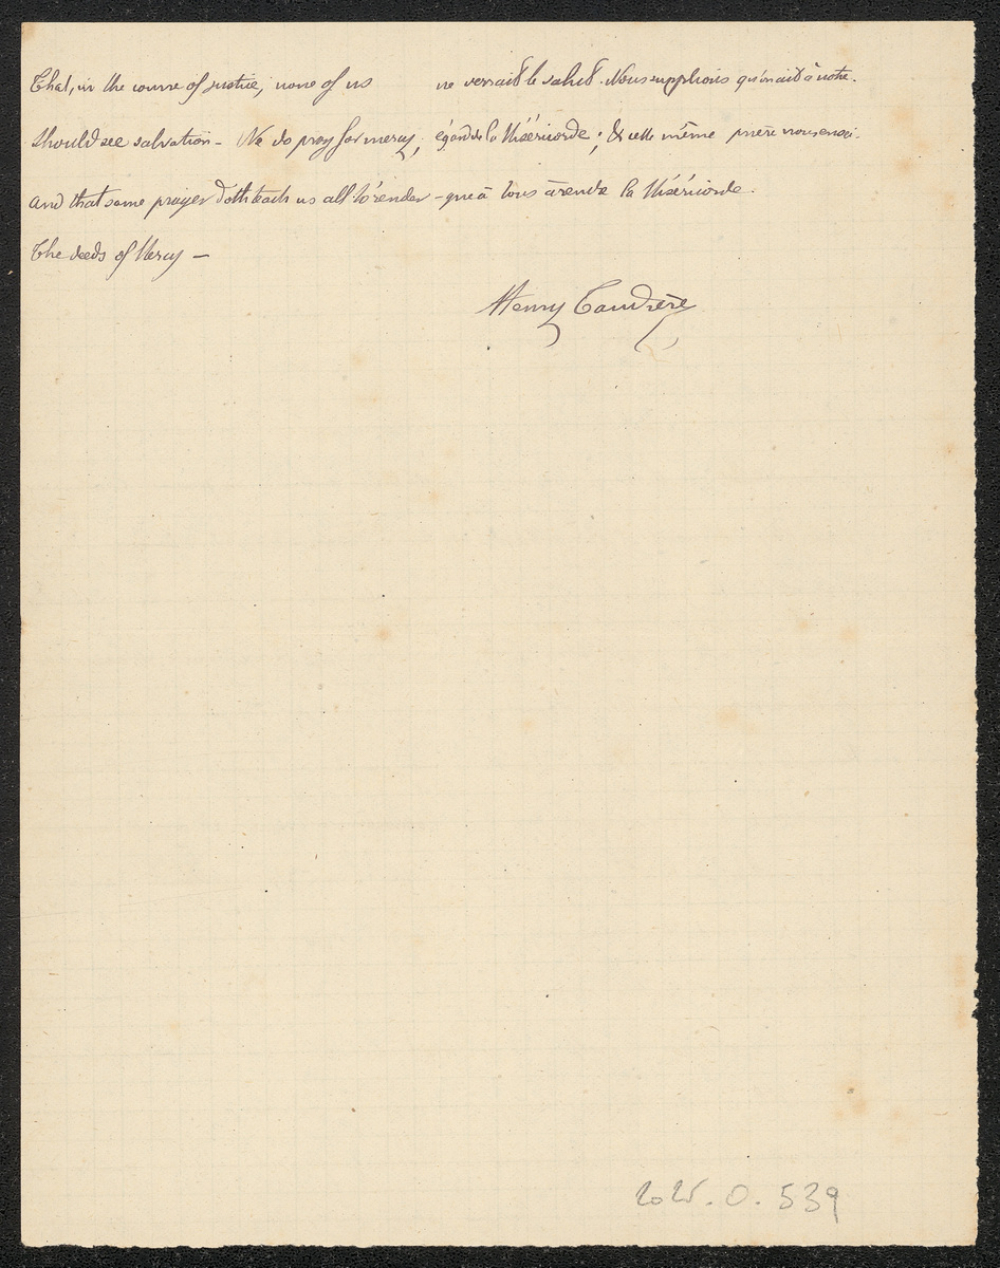 That, in the course of justice, none of us
should see salvation - We do pray for mercy,
and that same prayer doth teach us all to render
The deeds of Mercy -
ne verrait le salut. Nous supplions qu'on ait à notre
égard de la Miséricorde ; & cette même prière nous ensei-
-gne à tous à rendre la Miséricorde.
Henry
2025.0.539